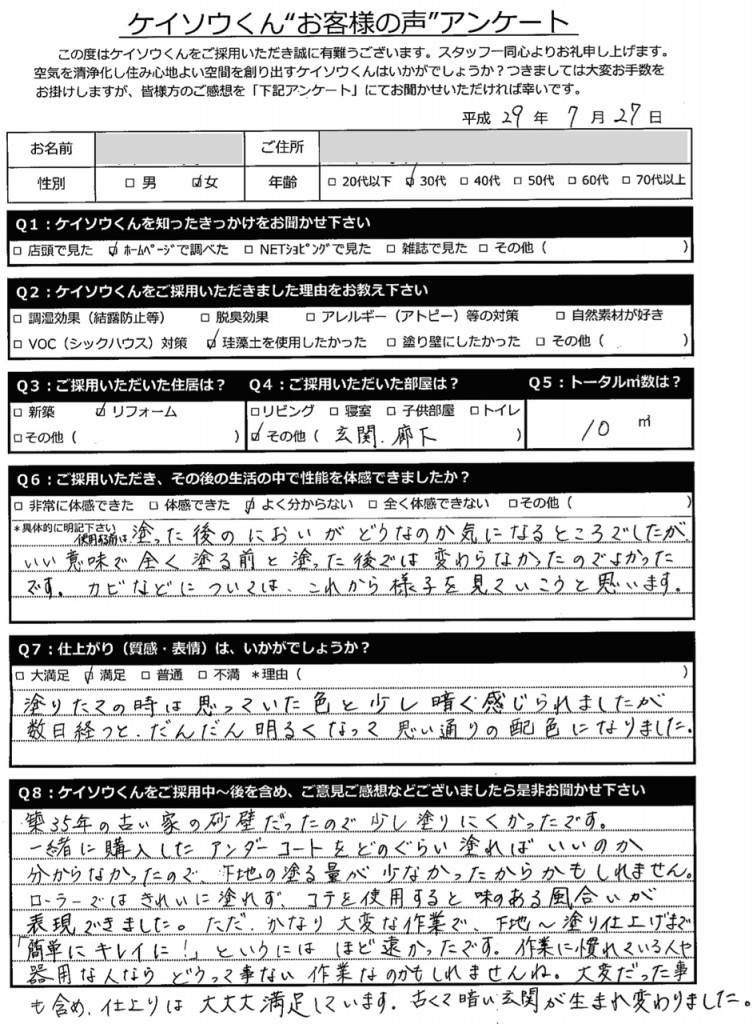 ケイソウくん“お客様の声”アンケート
この度はケイソウくんをご採用いただき誠に有難うございます。スタッフ一同心よりお礼申し上げます。
空気を清浄化し住み心地よい空間を創り出すケイソウくんはいかがでしょうか？つきましては大変お手数を
お掛けしますが、皆様方のご感想を「下記アンケート」にてお聞かせいただければ幸いです。
平成 29 年 7 月 27 日
お名前 ご住所
性別 □ 男 ☑女 年齢 □ 20代以下 ☑ 30代 □ 40代 □ 50代 □ 60代 □ 70代以上
Q1：ケイソウくんを知ったきっかけをお聞かせ下さい
□ 店頭で見た ☑ ﾎｰﾑﾍﾟｰｼﾞで調べた □ NETｼｮﾋﾟﾝｸﾞで見た □ 雑誌で見た □ その他（ ）
Q2：ケイソウくんをご採用いただきました理由をお教え下さい
□ 調湿効果（結露防止等） □ 脱臭効果 □ アレルギー（アトピー）等の対策 □ 自然素材が好き
□ VOC（シックハウス）対策 ☑ 珪藻土を使用したかった □ 塗り壁にしたかった □ その他（ ）
Q3：ご採用いただいた住居は？ Q4：ご採用いただいた部屋は？ Q5：トータル㎡数は？
□ 新築 ☑ リフォーム □リビング □ 寝室 □ 子供部屋 □トイレ
□その他（ ） ☑ その他（ 玄関．廊下 ） 10 ㎡
Q6：ご採用いただき、その後の生活の中で性能を体感できましたか？
□ 非常に体感できた □ 体感できた ☑ よく分からない □ 全く体感できない □その他（ ）
*具体的に明記下さい
使用する前は、塗った後のにおいがどうなのか気になるところでしたが、
いい意味で全く塗る前と塗った後では変わらなかったのでよかった
です。カビなどについては、これから様子を見ていこうと思います。
Q7：仕上がり（質感・表情）は、いかがでしょうか？
□ 大満足 ☑ 満足 □ 普通 □ 不満 *理由（ ）
塗りたての時は思っていた色と少し暗く感じられましたが
数日経つと、だんだん明るくなって思い通りの配色になりました。
Q8：ケイソウくんをご採用中～後を含め、ご意見ご感想などございましたら是非お聞かせ下さい
築35年の古い家の砂壁だったので少し塗りにくかったです。
一緒に購入したアンダーコートをどのぐらい塗ればいいのか
分からなかったので、下地の塗る量が少なかったからかもしれません。
ローラーではきれいに塗れず、コテを使用すると味のある風合いが
表現できました。ただ、かなり大変な作業で、下地～塗り仕上げまで
「簡単にキレイに！」というにはほど遠かったです。作業に慣れている人や
器用な人ならどうって事ない作業なのかもしれませんね。大変だった事
も含め、仕上りは大大大満足しています。古くて暗い玄関が生まれ変わりました。